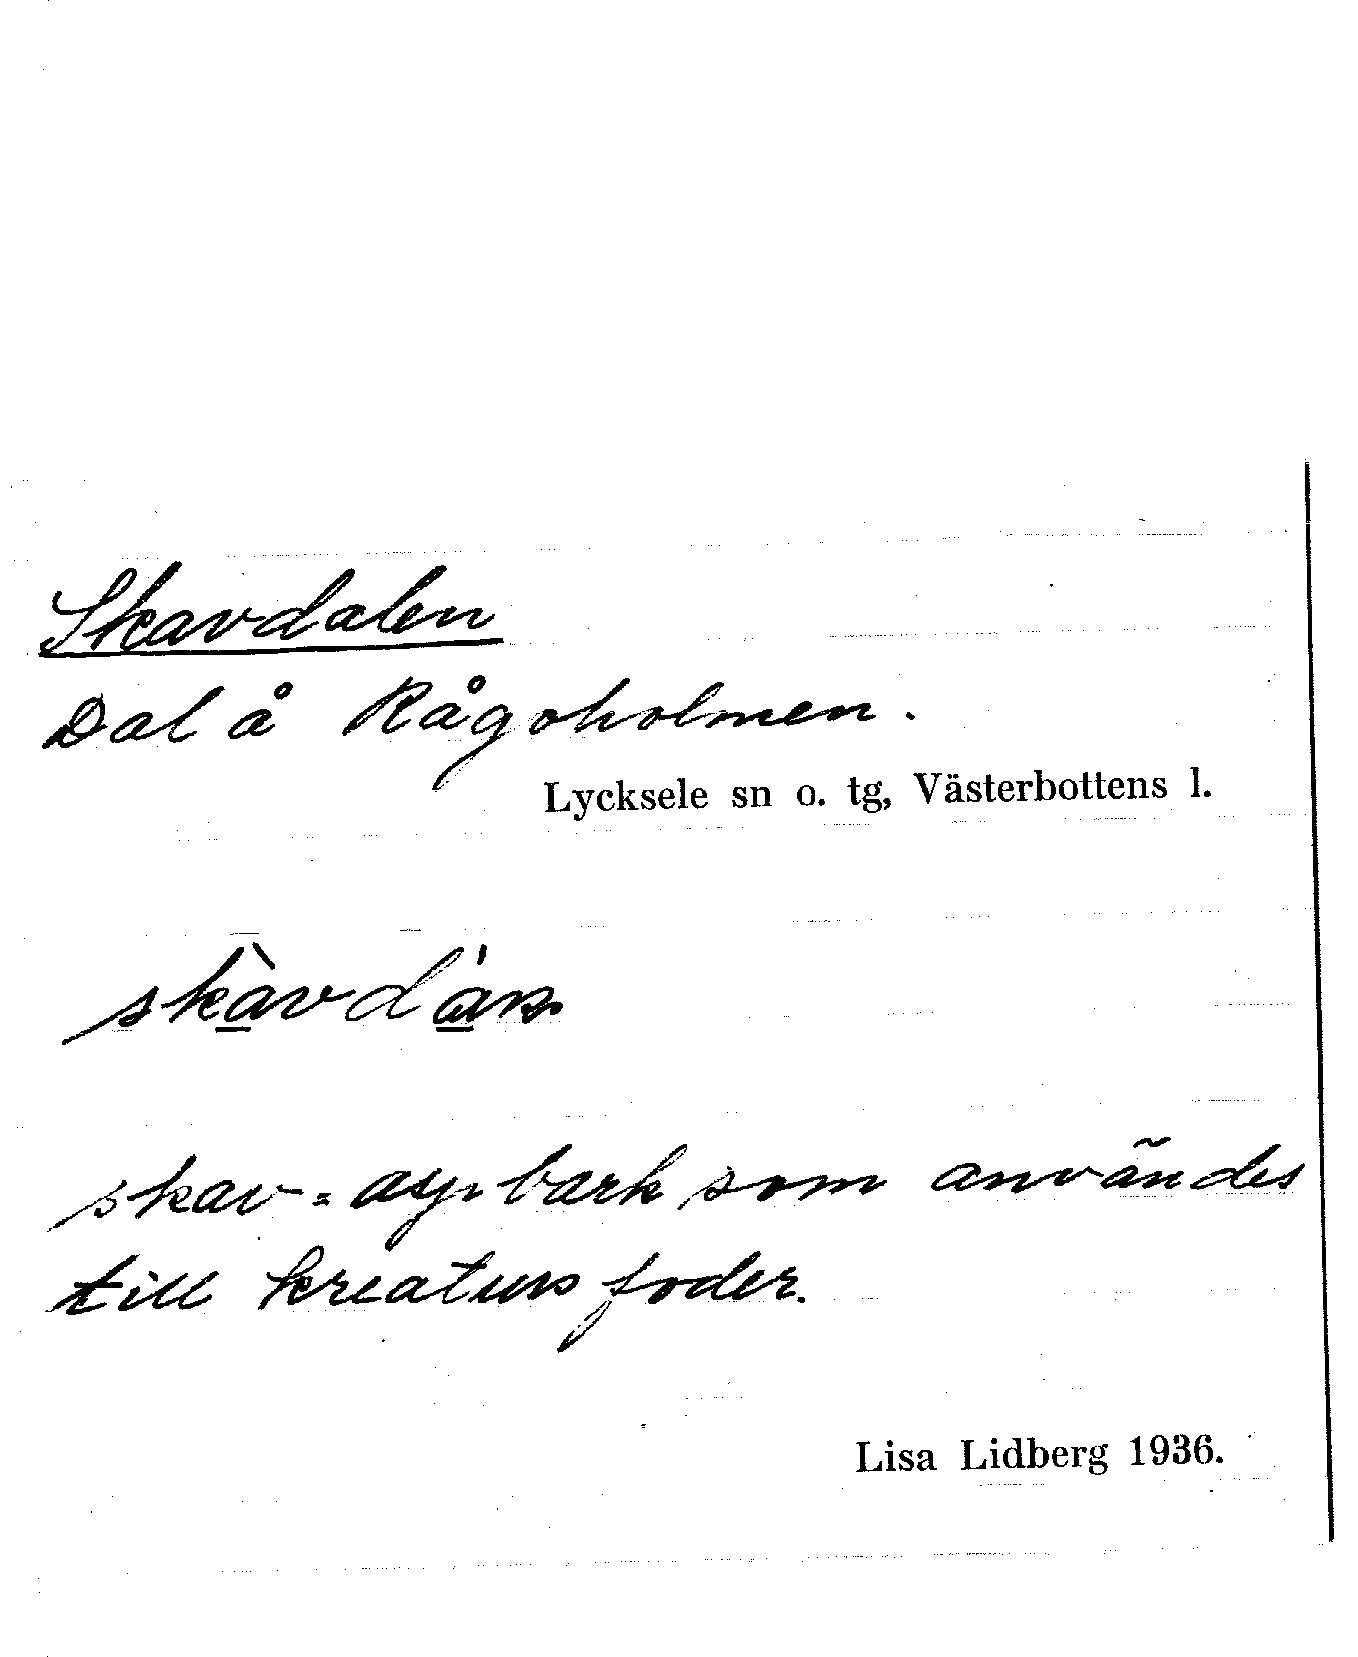 Skavdalen
Dal å Rågoholmen.
Lycksele sn o. tg, Västerbottens l.
skav = aspbark som användes
till kreatursfoder.
Lisa Lidberg 1936.